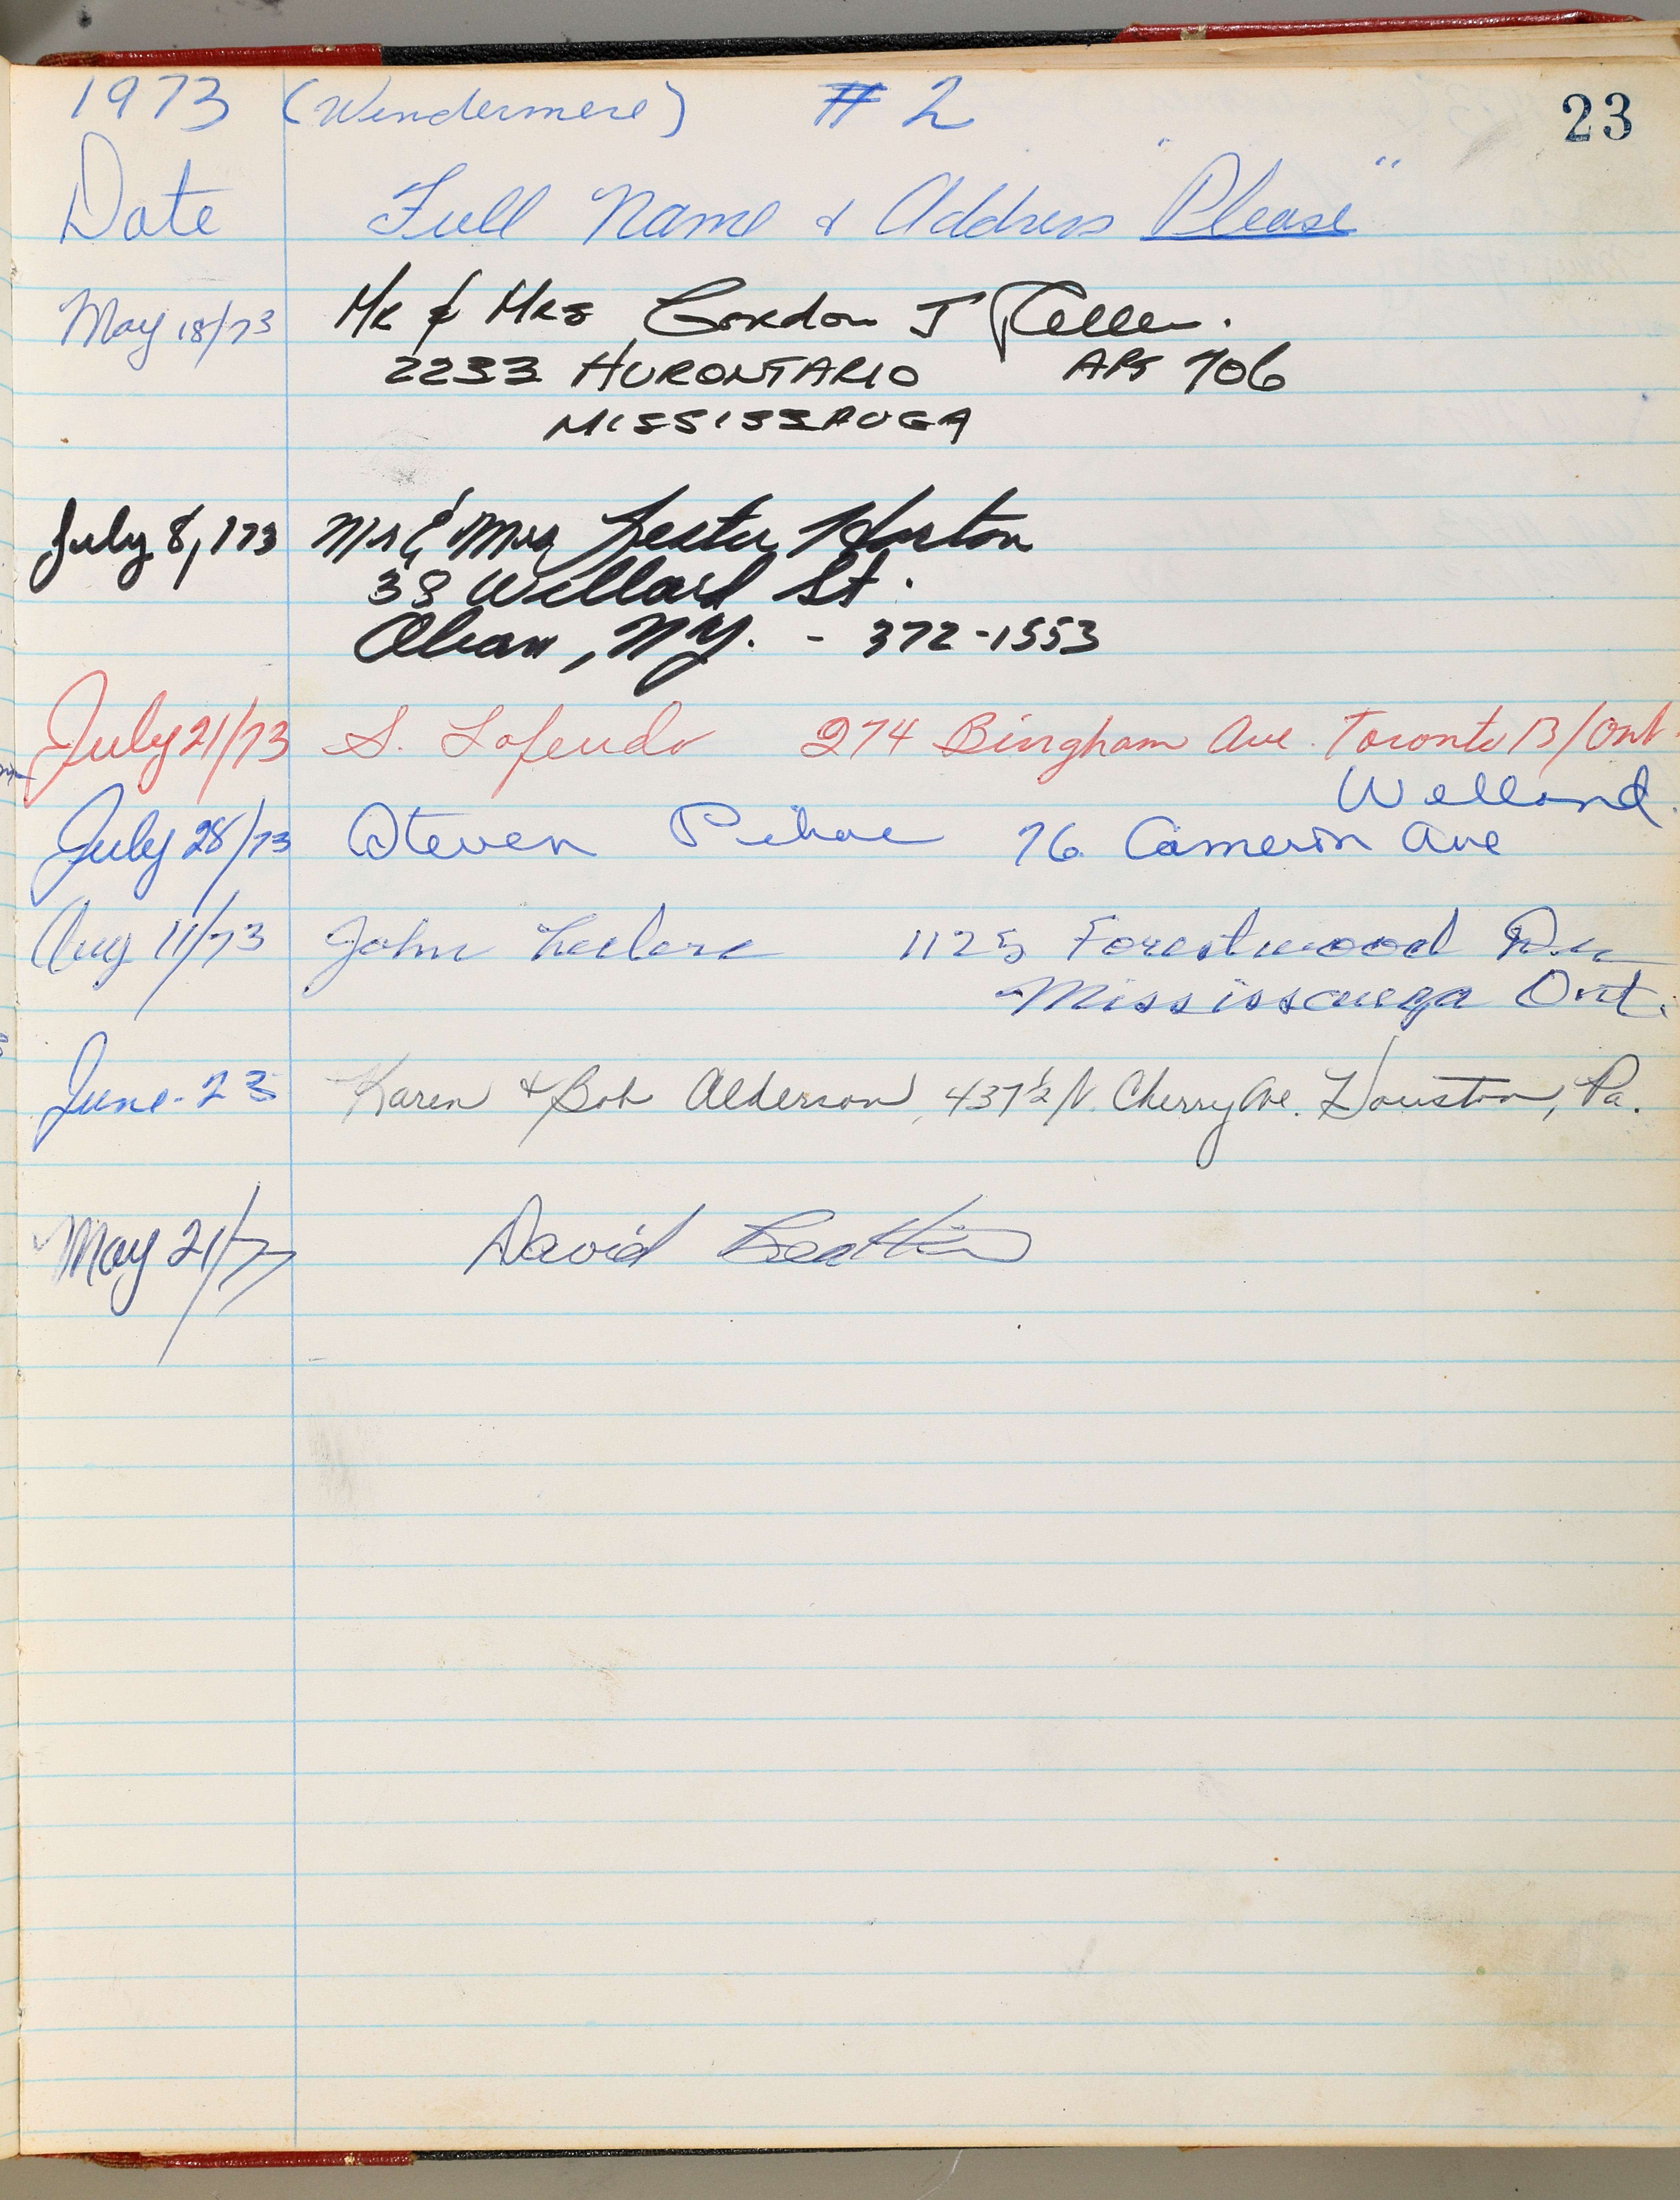 1973 (Windermere) # 2 23
Date Full Name & Address "Please"
May 18/73 Mr & Mrs Gordon J Keller.
2233 HURONTARIO APT 706
MISSISSAUGA
July 8, 173 Mr & Mrs Lester Horton
38 Willard St.
Olean, N.Y. - 372-1553
July 21/73 S. Lofendo 274 Bingham Ave. Toronto 13/Ont.
Welland.
July 28/73 Steven 76 Cameron Ave
Aug 11/73 John Leclerc 1125 Forestwood Dr
Mississauga Ont.
June-23 Karen & Bob Alderson, 437½ N. Cherry Ave. Houston, Pa.
May 21/77 David Beattie